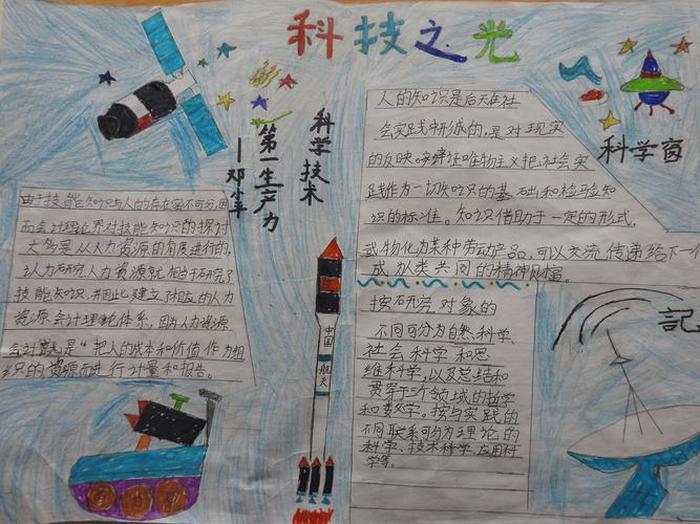 科技之光
科学技术
第一生产力
—邓小平
人的知识是后天在社
会实践中形成的,是对现实
的反映。辩证唯物主义把社会实
践作为一切知识的基础和检验知
识的标准。知识借助于一定的形式,
或物化为某种劳动产品,可以交流传递给下一个
成为人类共同的精神财富。
科学窗
由于技能知识与人的存在密不可分,因
而会计理论界对技能知识的探讨
大多是从人力资源的角度进行的,
认为研究人力资源就相当于研究了
技能知识,并因此建立了相应的人力
资源会计理论体系。因为人力资源
会计就是"把人的成本和价值作为组
织的资源而进行计量和报告。
中国
航天
按研究对象的
不同可分为自然科学、
社会科学和思
维科学,以及总结和
贯穿于三个领域的哲学
和数学。按与实践的
不同联系可分为理论的
科学、技术科学、应用科
学等。
記